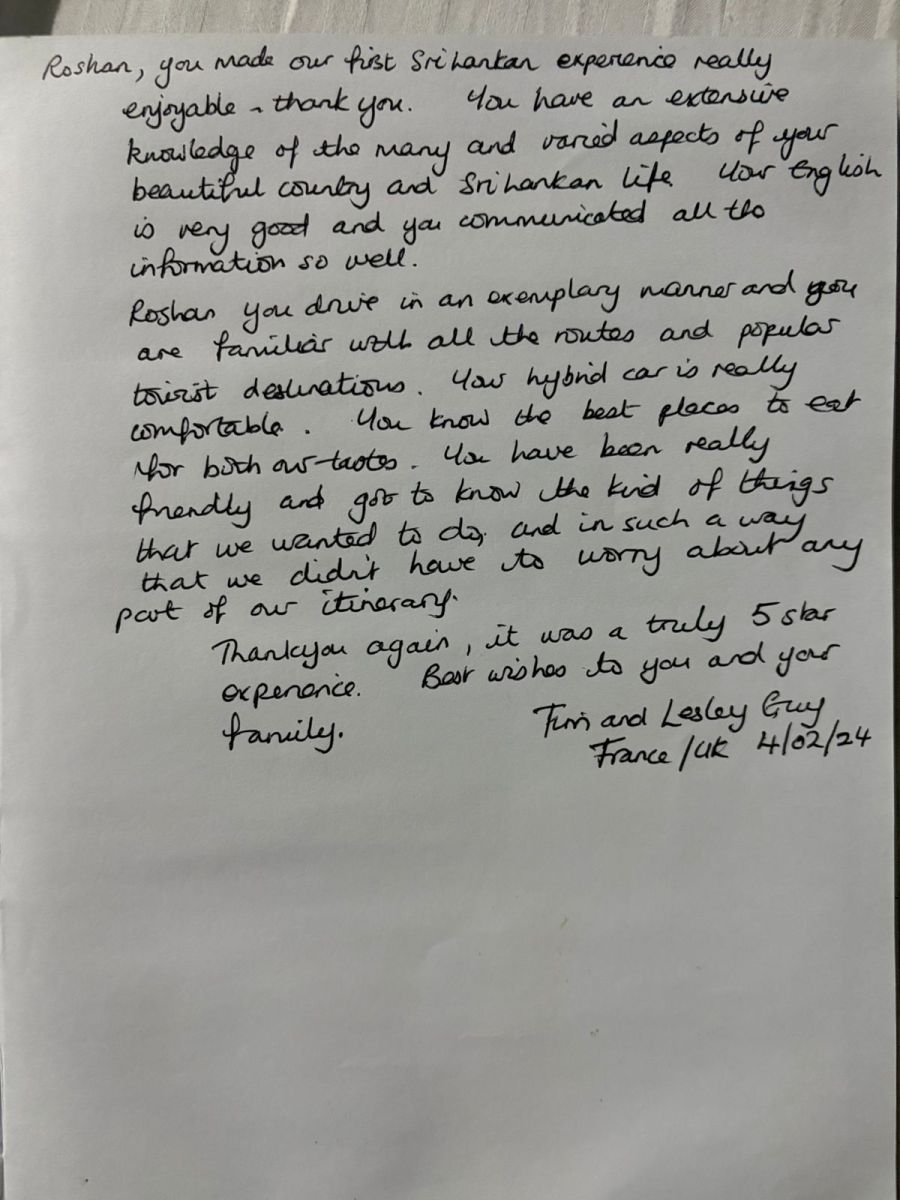 Roshan, you made our first Sri Lankan experience really
enjoyable - thank you. You have an extensive
knowledge of the many and varied aspects of your
beautiful country and Sri Lankan life Your English
is very good and you communicated all the
information so well.
Roshan you drive in an exemplary manner and you
are familiar with all the routes and popular
tourist destinations. Your hybrid car is really
comfortable. You know the best places to eat
for both our tastes. You have been really
friendly and got to know the kind of things
that we wanted to do, and in such a way
that we didn't have to worry about any
part of our itinerary.
Thankyou again, it was a truly 5 star
experience. Best wishes to you and your
family.
Tim and Lesley Guy
France/UK 4/02/24